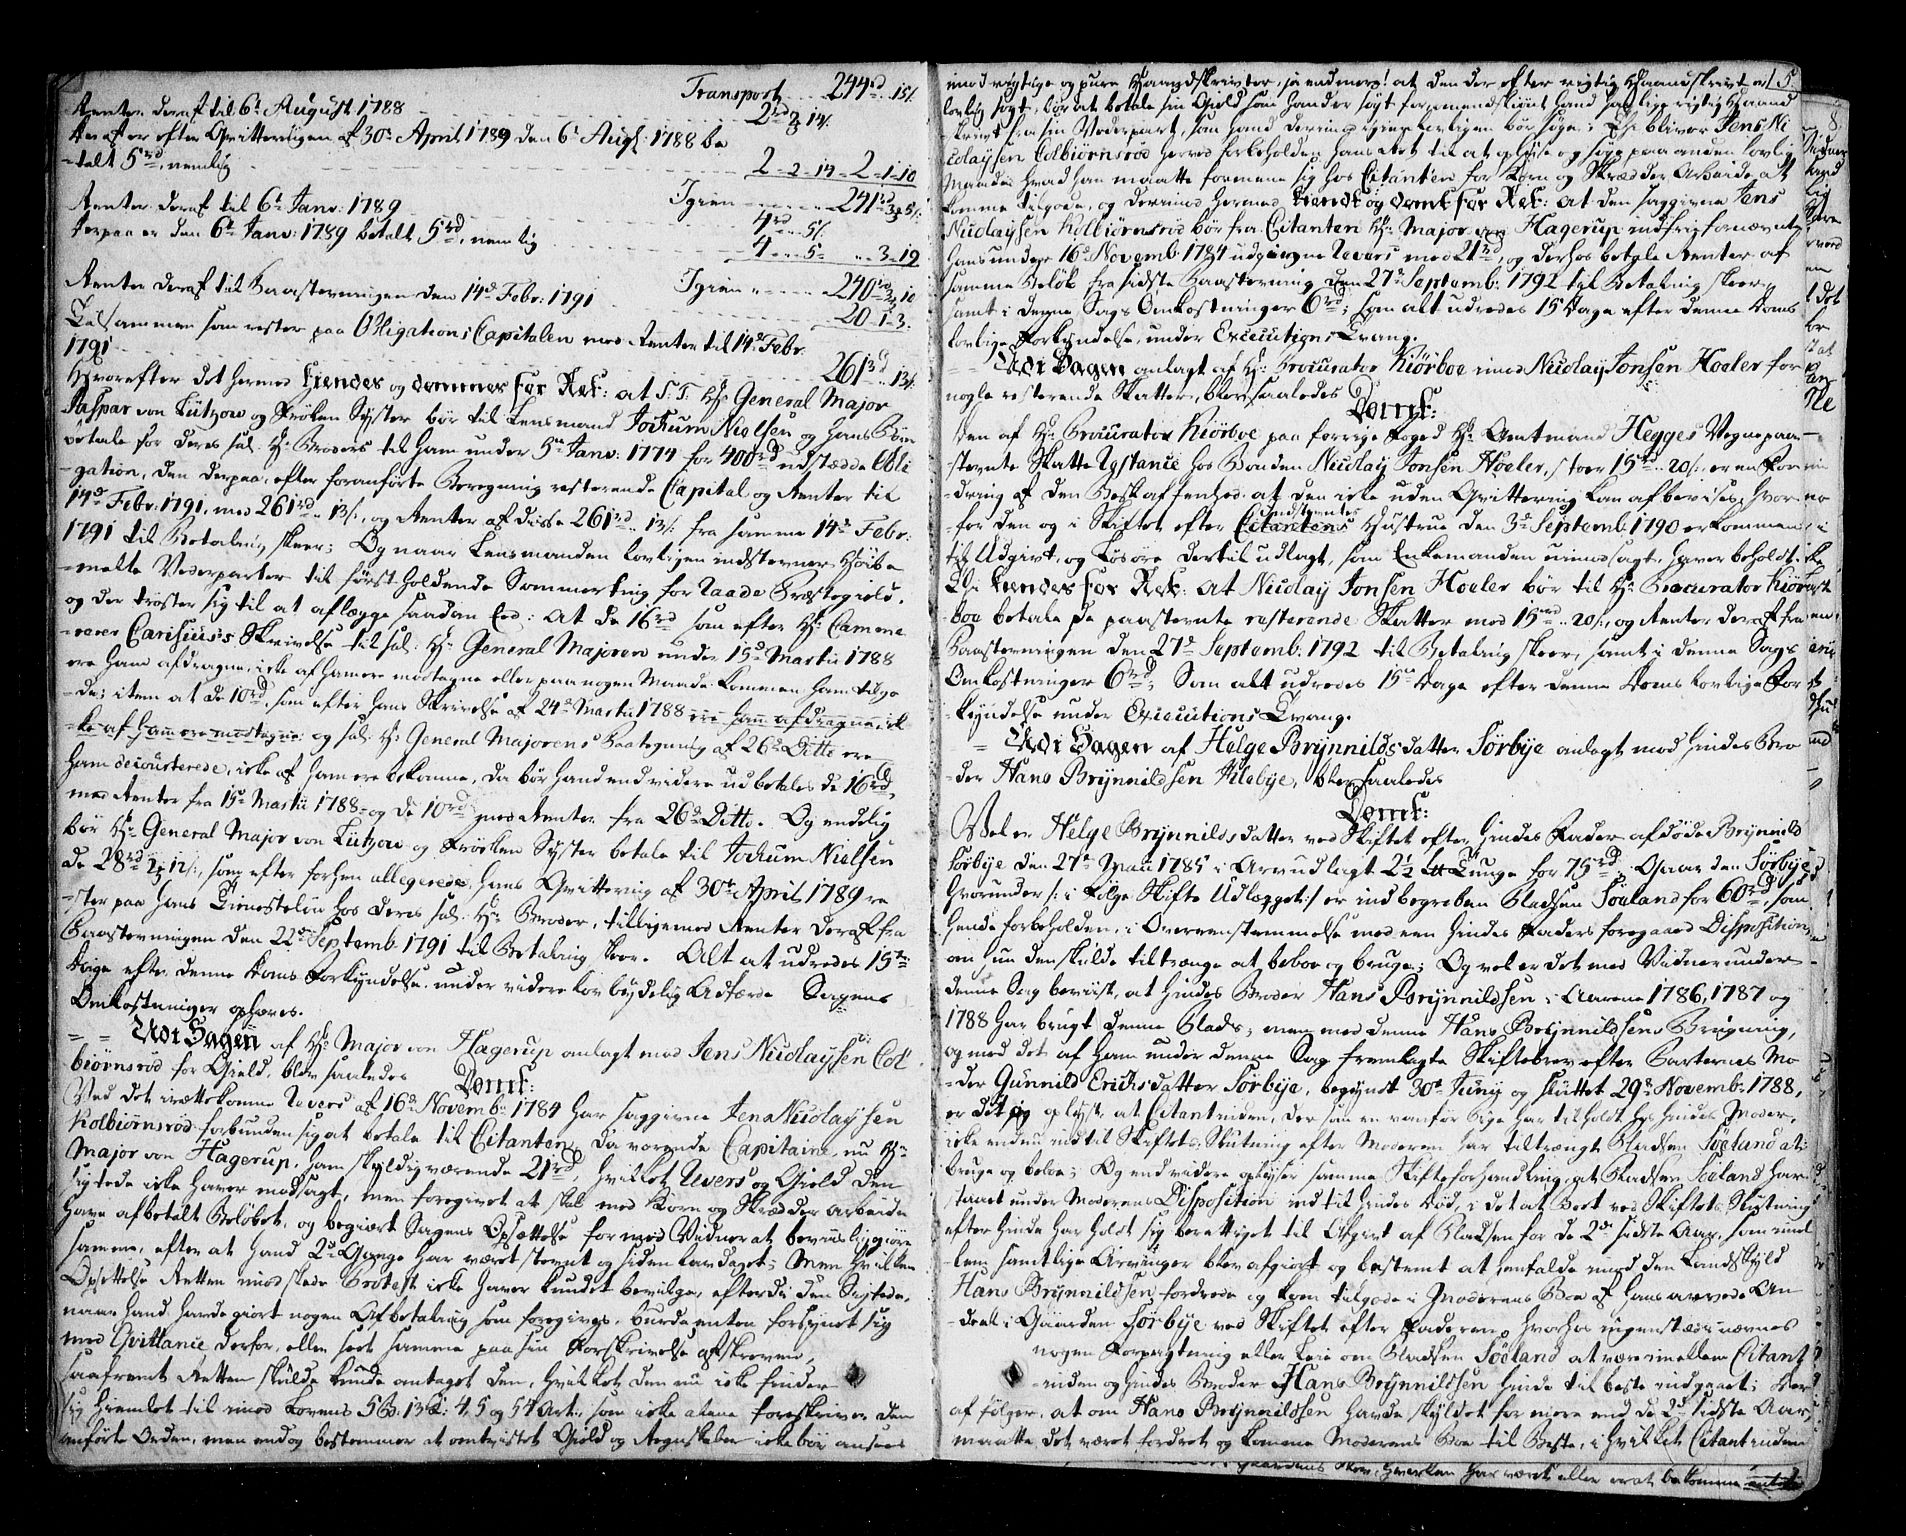 Transport . . 244rd .. 15s.
Renter deraf til 6t August 1788 . . . 2rd 2# 14s.
Deraf er efter Qvitteringen af 30te April 1789 den 6t Augs. 1788 be
=talt 5rd, nemlig . . . 2 - 2 - 14 - 2 - 1 - 10
Igien . . . 241rd 3# 5s.
Renter deraf til 6t Janv: 1789 . . . 4rd .. 5s.
Derpaa er den 6t Janv: 1789 betalt 5rd, nemlig . . 4 .. 5 - .. 3 - 19
Igien . . . 240rd 3# 10
Renter deraf til Paastevningen den 14d Febr: 1791 . . . 20 - 1 - 3.
Tilsammen som rester paa Obligations Capitalen med Renter til 14d Febr.
1791 . . . 261rd .. 13s.
Hvorefter det hermed kiendes og dømmes for Ret: at S. T. Hr General Major
Caspar von Lützow og Frøken Syster bør til Lensmand Jochum Nielsen og hans Børn
betale for deres sal. Hr Broders til ham under 5te Janv: 1774 for 400rd udstædde Obli
=gation, den derpaa, efter foranførte Beregning resterende Capital og Renter til
14d Febr: 1791, med 261rd .. 13s., og Renter af disse 261rd .. 13s. fra samme 14d Febr:
1791 til Betaling skeer; Og naar Lensmanden lovligen indstevner Høibe
=melte Vederparter til først holdende Sommerting for Raade Præstegield,
og der trøster sig til at aflægge saadan Eed: At de 16rd som efter Hr Camme
=rerer Carisius's Skrivelse til sal: Hr General Majoren under 15d Martii 1788
ere ham afdragne, ikke af ham ere modtagne eller paa nogen Maade kommen ham tilgo
=de; item at de 10rd, som efter hans Skrivelse af 24d Martii 1788 ere ham afdragne, ik
=ke af ham ere modtagne: og sal: Hr General Majorens Paategning af 26d Ditto ere
ham decourterede, ikke af ham ere bekomne, da bør hand end videre udbetales de 16rd,
med Renter fra 15d Martii 1788 og de 10rd med Renter fra 26d Ditto. Og endelig
bør Hr General Major von Lützow og Frøken Syster betale til Jochum Nielsen
de 28rd 2# 12s., som efter forhen allegerede, hans Qvittering af 30te April 1789 re
=ster paa hans Tieneste Løn hos deres sal. Hr Broder, tilligemed Renter deraf fra
Paastevningen den 22d Septemb. 1791 til Betaling skeer. Alt at udredes 15ten
Dage efter denne Doms Forkyndelse under videre Lovbydelig Adfærd. Sagens
Omkostninger ophæves.
= = Udi Sagen af Hr Major von Hagerup anlagt mod Jens Nicolaysen Col
biørnsrød for Gield, blev saaledes Dømt:
Ved det irettekomne Revers af 16d Novemb: 1784 har saggivne Jens Nicolaysen
Kolbiørnsrød forbunden sig at betale til Citanten, da værende Capitaine, nu Hr
Major von Hagerup, ham skyldig værende 21rd, hvilket Revers og Gield den
sigtede ikke haver modsagt, men foregivet at skal med Korn og Skrædder Arbeide
have afbetalt Beløbet, og begiært Sagens Opsættelse for med Vidner at beviisliggiøre
samme, efter at hand 2de Gange har været stevnt og siden lavdaget; Men hvilken
Opsettelse Retten imod skede Protest ikke haver kundet bevilge, efterdi den Sigtede,
naar hand havde giort nogen Afbetaling som foregives, burde enten forsynet sig
med Qvittance derfor, eller seet samme paa sin Forskrivelse afskreven,
saafremt Retten skulde kunde antaget den, hvilket den nu ikke finder
sig hiemlet til imod Lovens 5 B: 13 C: 4, 5 og 54 Art:, som ikke alene foreskriver den
anførte Orden, men endog bestemmer at omtvistet Gield og Regnskaber ikke bør ansees
imod rigtige og pure Haandskrifter, ja end mere! at den der efter rigtig Haandskrift er 5
lovlig søgt, bør at betale sin Gield som hand er søgt for, uendskiønt hand har lige rigtig Haand
=skrivt fra sin Vederpart, som hand derimod igien lovligen bør søge; Thi bliver Jens Ni
colaysen Colbiørnsrød herved forbeholden hans Ret til at oplyse og søge paa anden lovlig
Maade hvad han maatte formene sig hos Citanten for Korn og Skrædder Arbeide at
komme tilgode, og derimod hermed kiendt og dømt for Ret: at den saggivne Jens
Nicolaysen Kolbiørnsrød bør fra Citanten Hr Major von Hagerup indfrie fornævnte
hans under 16d Novemb. 1784 udgivne Revers med 21rd, og derhos betale Renter af
samme Beløb fra sidste Paastevning den 27d Septemb: 1792 til Betaling skeer,
samt i denne Sags Omkostninger 6rd; som alt udredes 15 Dage efter denne Doms
lovlige Forkyndelse, under Executions Tvang.
= = Udi Sagen anlagt af Hr Procurator Kiörboe imod Nicolay Jonsen Hoeler for
nogle resterende Skatter, blev saaledes Dømt:
Den af Hr Procurator Kiörboe paa forrige Foged Hr Amtmand Hegges Vegne paa=
=stevnte Skatte Restance hos Bonden Nicolay Jonsen Hoeler, stoer 15rd .. 20s., er en For
=dring af den Beskaffenhed at den ikke uden Qvittering kan afbevises, hvor
=for den og i Skiftet efter Citantens Indstevntes Hustrue den 3d Septemb. 1790 er kommen
til Udgivt, og Løsøre dertil udlagt, som Enkemanden uimodsagt haver beholdt.
Thi kiendes for Ret: At Nicolay Jonsen Hoeler bør til Hr Procurator Kiör
=boe betale de paastevnte resterende Skatter med 15rd .. 20s., og Renter deraf fra
Paastevningen den 27d Septemb: 1792 til Betaling skeer, samt i denne Sags
Omkostninger 6rd; Som alt udredes 15ten Dage efter denne Doms lovlige For
=kyndelse under Executions Tvang.
= Udi Sagen af Helge Brynnildsdatter Sørbye anlagt mod hindes Bro
=der Hans Brynnildsen Wlebye, blev saaledes
Dømt:
Vel er Helge Brynnildsdatter ved Skiftet efter hindes Fader afdøde Brynnild
Sørbye den 27d Maii 1785 i Arv udlagt 2½ # Tunge for 75rd, i Gaarden Sørbye,
hvorunder /: i følge Skifte Udlægget :/ er indbegreben Pladsen Söeland for 60rd, som
hende forbeholden, i Overeenstemmelse med een hindes Faders foregaaed Disposition,
om hun den skulde tiltrænge at beboe og bruge; Og vel er det med Vidner under
denne Sag beviist, at hindes Broder Hans Brynnildsen i Aarene 1786, 1787 og
1788 har brugt denne Plads; men med denne Hans Brynnildsens Brugning,
og med det af ham under denne Sag fremlagte Skiftebrev efter Parternes Mo
=der Gunnild Erichsdatter Sørbye, begyndt 30te Juny og sluttet 29d Novemb: 1788,
er det og oplyst, at Citantinden, der som en vanfør Pige har tilholdt hos hindes Moder,
ikke endnu indtil Skiftets Slutning efter Moderen har tiltrængt Pladsen Söeland at
bruge og beboe; Og end videre oplyser samme Skifteforhandling, at Pladsen Söeland har
staaet under Moderens Disposition indtil hindes Død, i det at Boet ved Skiftets Slutning
efter hinde har holdt sig berettiget til Afgivt af Pladsen for de 2de sidste Aar, som imel
=lem samtlige Arvinger blev afgiort og bestemt at henfalde imod den Landskyld
Hans Brynnildsen fordrede og kom tilgode i Moderens Boe af hans arvede An
=deel i Gaarden Sørbye ved Skiftet efter Faderen, hvorhos ingenstæds nævnes
nogen Forpagtning eller Leie om Pladsen Söeland at være imellem Citant
=inden og hindes Broder Hans Brynnildsen hinde til beste indgaaet; Der
af følger, at om Hans Brynnildsen havde skyldet for mere end de 2de sidste Aar,
maatte det været fordret og komme Moderens Boe til Beste, i hvilket Citantinden
Gaardens Skov, hverken har været eller erat bekomme